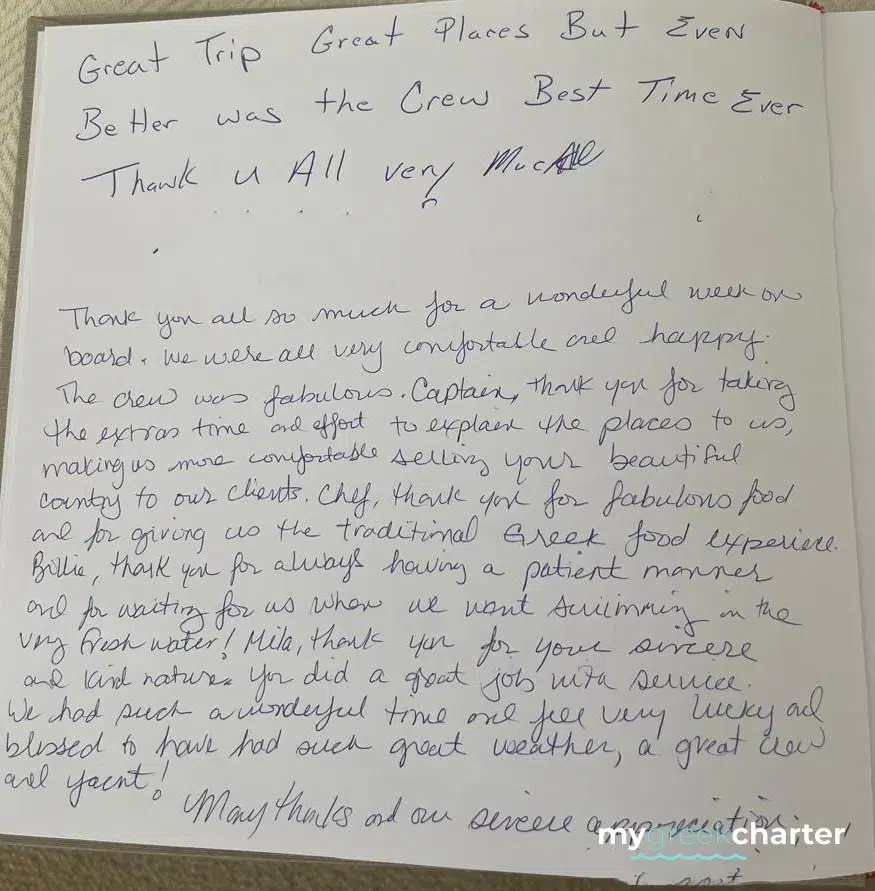 Great Trip Great Places But Even
Better was the Crew Best Time Ever
Thank u All very Much
Thank you all so much for a wonderful week on
board. We were all very comfortable and happy.
The crew was fabulous. Captain, thank you for taking
the extra time and effort to explain the places to us,
making us more comfortable selling your beautiful
country to our clients. Chef, thank you for fabulous food
and for giving us the traditional Greek food experience.
Billie, thank you for always having a patient manner
and for waiting for us when we went swimming in the
very fresh water! Mila, thank you for your sincere
and kind nature. You did a great job with service.
We had such a wonderful time and feel very lucky and
blessed to have had such great weather, a great crew
and yacht!
Many thanks and our sincere appreciation,
mygreekcharter